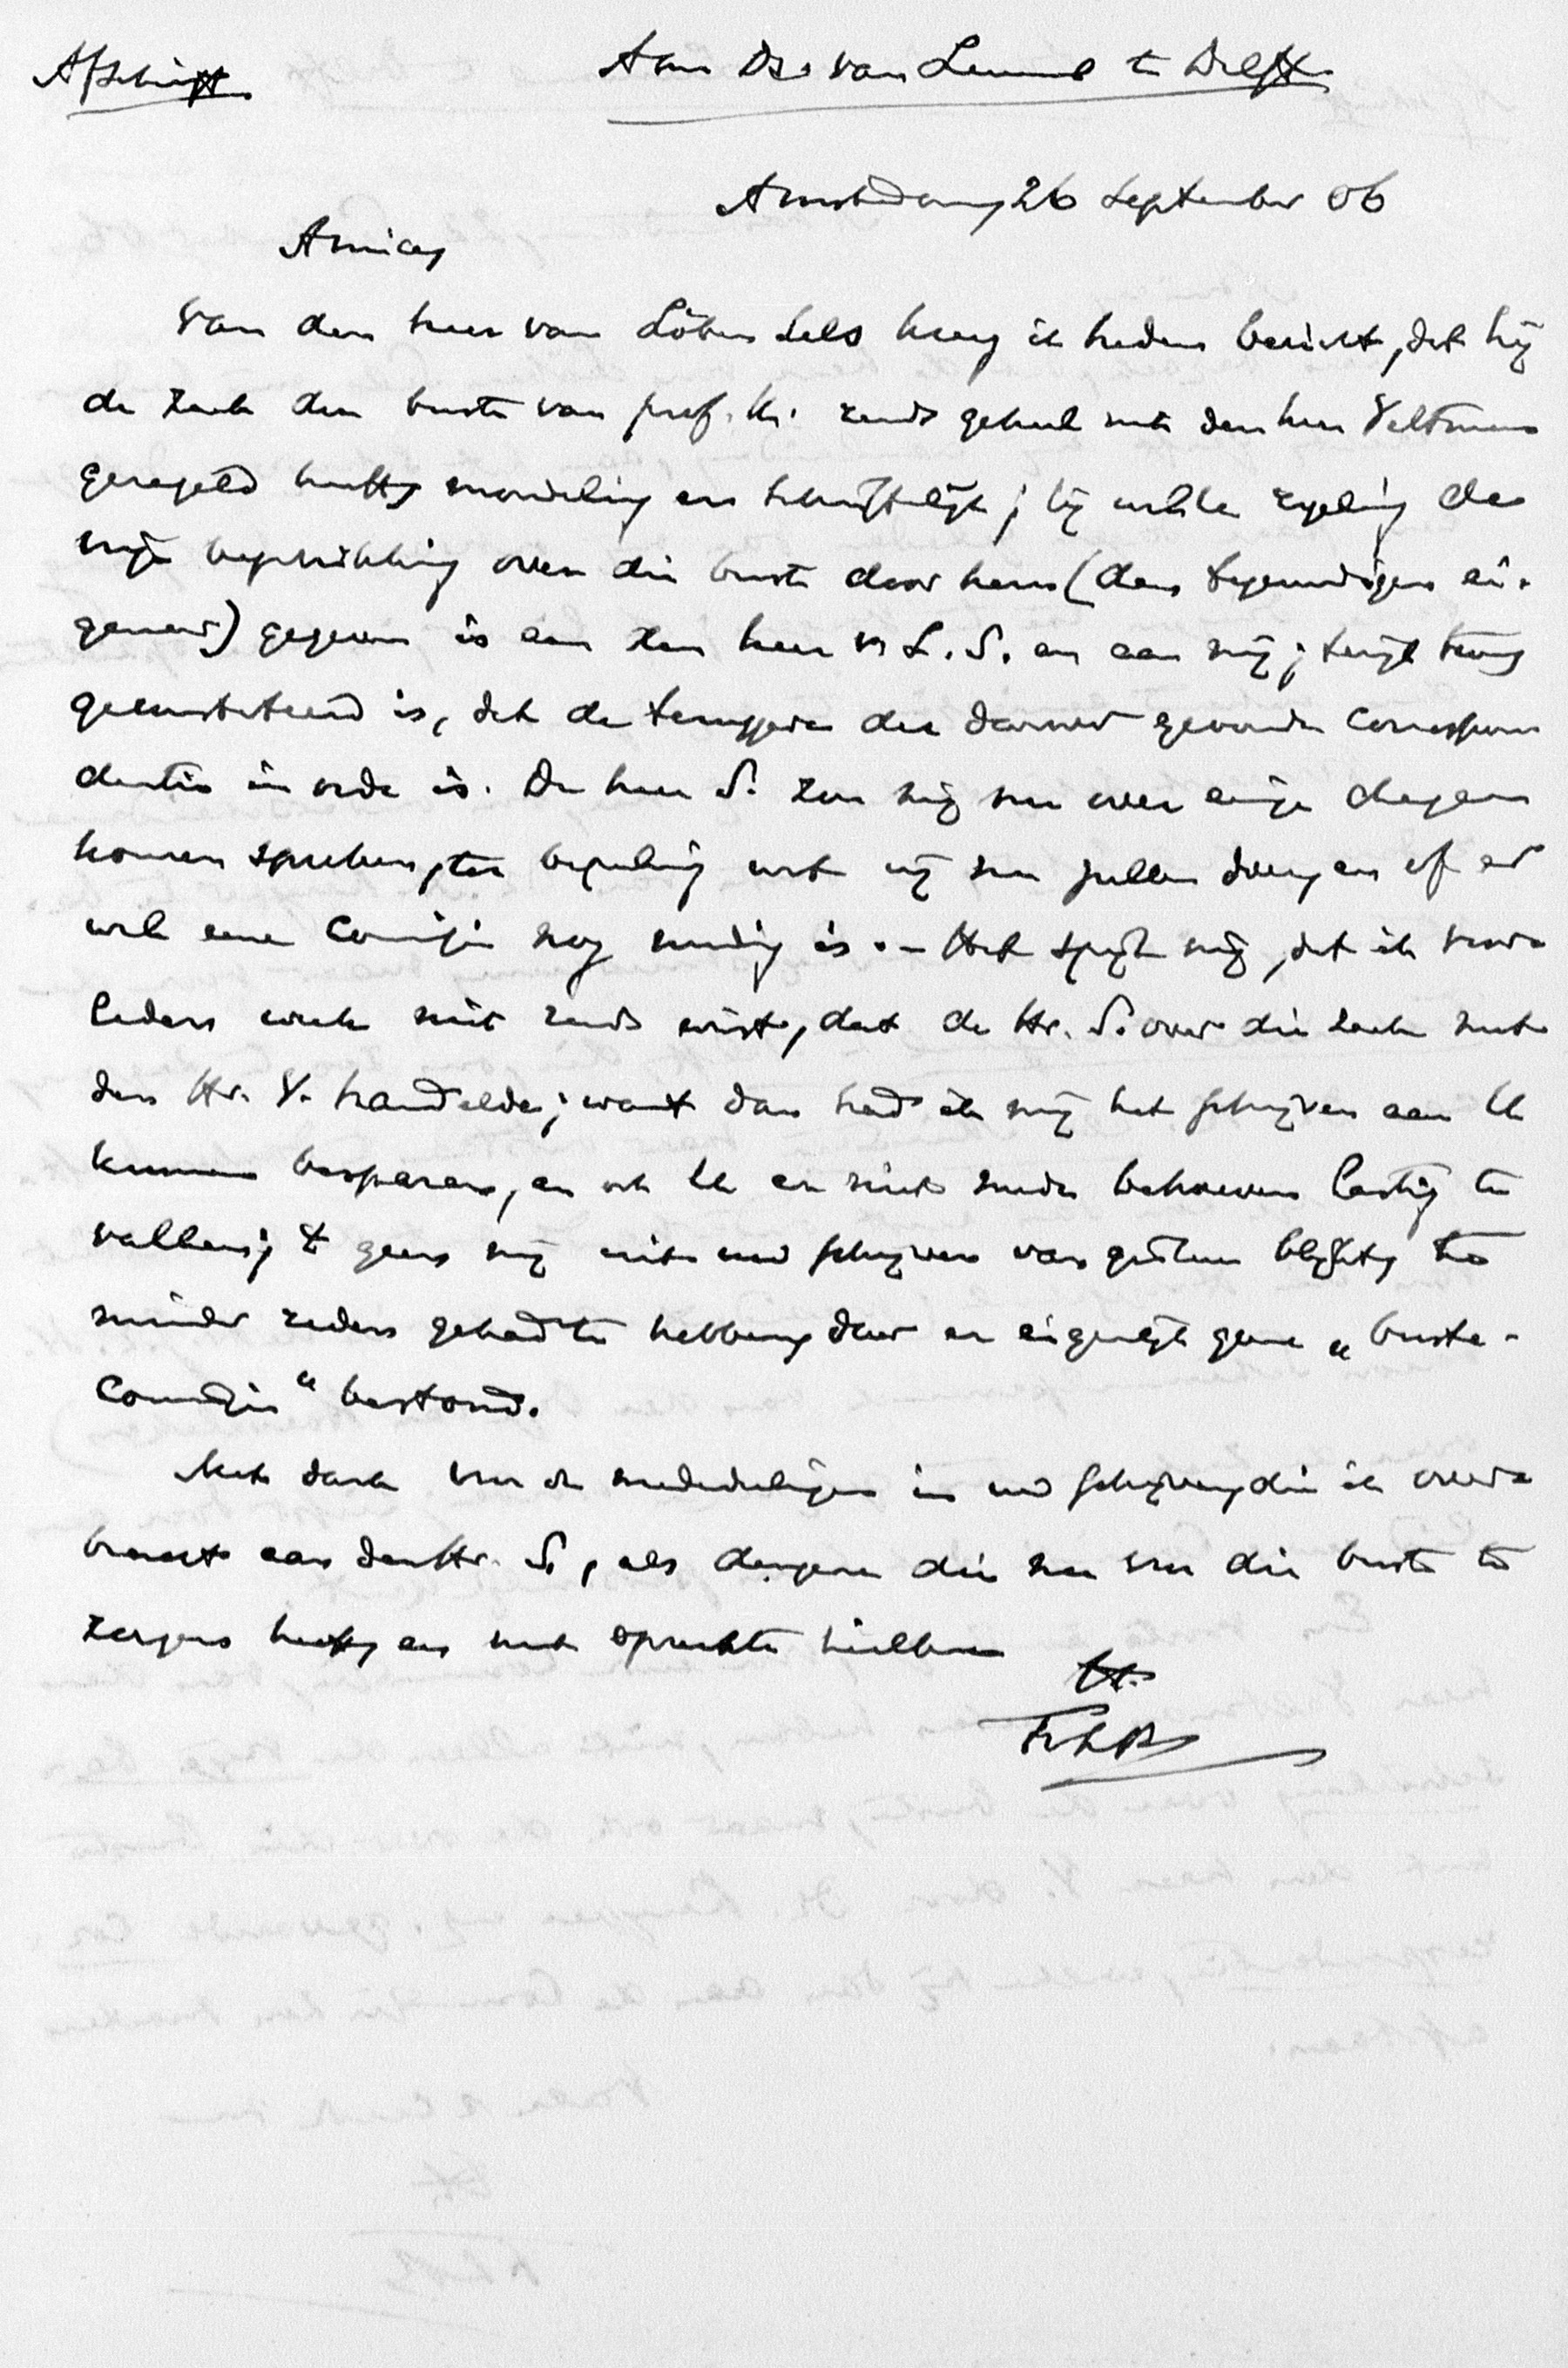 Afschrift
Aan Ds. van Lummel te Delft
Amsterdam, 26 September 06
Amice,
Van den heer van Löben Sels kreeg ik heden bericht, dat hij
de zaak der buste van prof. K. reeds geheel met den heer Veltman
geregeld heeft, mondeling en schriftelijk; bij welke regeling de
vrije beschikking over die buste door hem (den tegenwoordigen ei-
genaar) gegeven is aan den heer v. L. S. en aan mij; terwijl tevens
geconstateerd is, dat de teruggave der daarover gevoerde Correspon
dentie in orde is. De heer S. zou mij nu over eenige dagen
komen spreken, ter bepaling wat wij nu zullen doen, en of er
wel eene Commissie nog noodig is. – Het spijt mij, dat ik voor-
leden week niet reeds wist, dat de Hr. S. over die zaak met
den Hr. V. handelde; want dan had ik mij het schrijven aan U
kunnen besparen, en ook U er niet mede behoeven lastig te
vallen; t geen mij uit uw schrijven van gisteren blijkt, te
minder reden gehad te hebben, daar er eigenlijk geene „buste-
Commissie" bestond.
Met dank voor de mededeelingen in uw schrijven, die ik over-
bracht aan den Hr. S., als degene die nu voor die buste te
zorgen heeft, en met oprechte heilbede
tt.